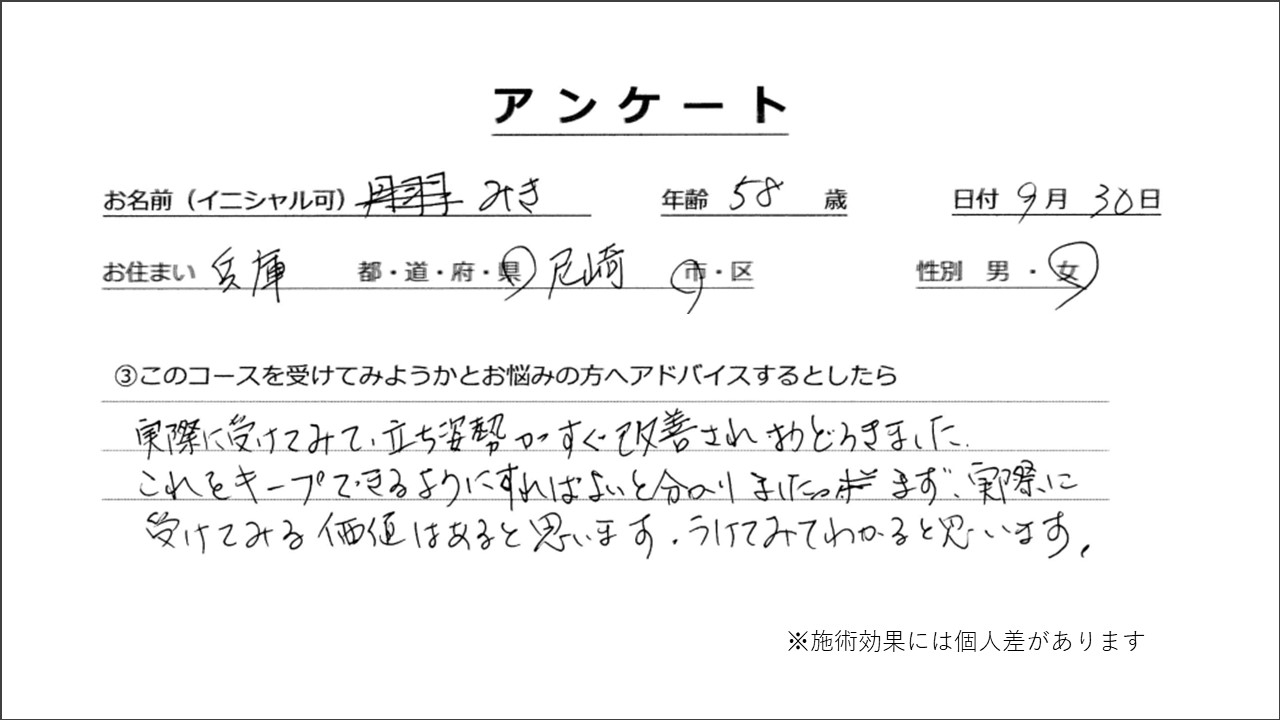 アンケート
お名前（イニシャル可） みき 年齢 58 歳 日付 9月 30日
お住まい 兵庫 都・道・府・県 尼崎 市・区 性別 男・女
③このコースを受けてみようかとお悩みの方へアドバイスするとしたら
実際に受けてみて、立ち姿勢がすぐ改善されおどろきました。
これをキープできるようにすればよいと分かりました。まず、実際に
受けてみる価値はあると思います。うけてみてわかると思います。
※施術効果には個人差があります